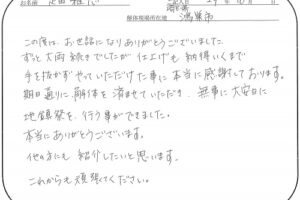 お名前
ご記入日 29年10月 日
解体現場所在地 鴻巣市
この度は、お世話になりありがとうございました。
ずっと大雨続きでしたが仕上げも納得いくまで
手を抜かずやっていただけた事に本当に感謝しております。
期日通りに解体を済ませていただき、無事に大安日に
地鎮祭を行う事ができました。
本当にありがとうございます。
他の方にも紹介したいと思います。
これからも頑張てください。